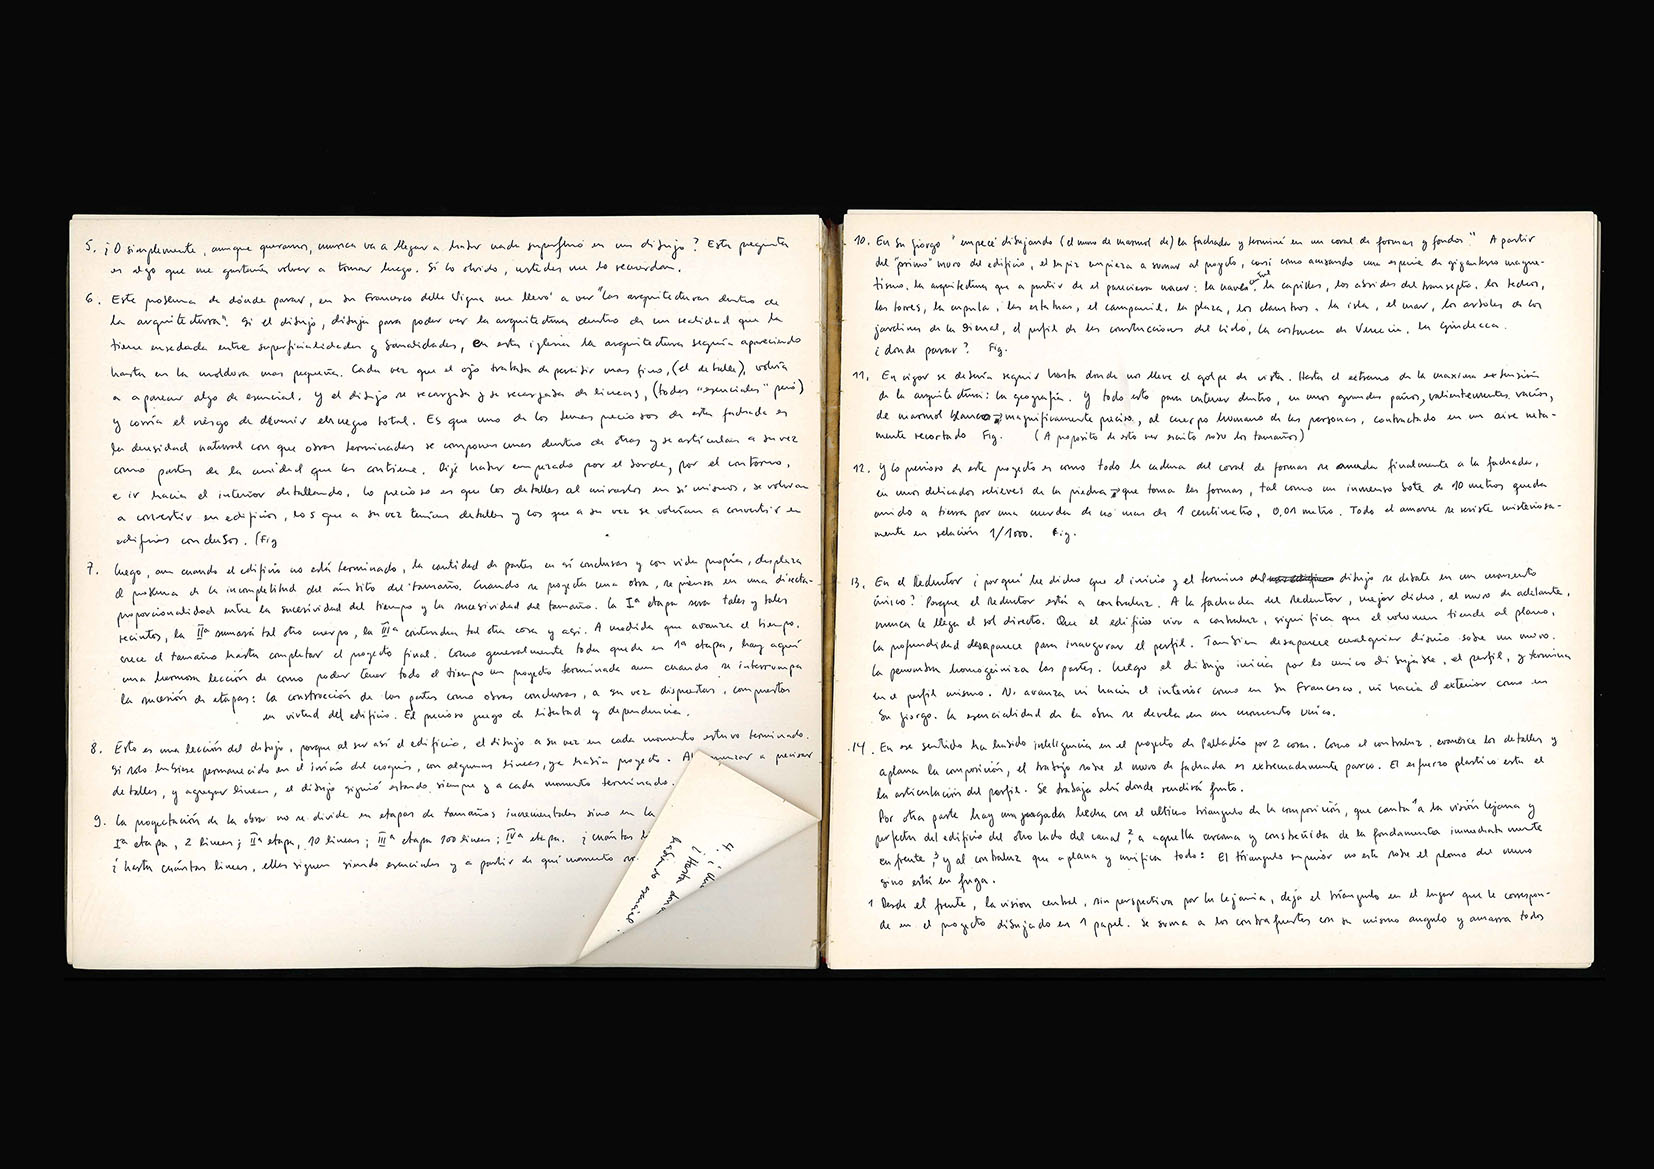 5. ¿O simplemente, aunque queramos, nunca va a llegar a haber nada superfluo en un dibujo? Esta pregunta
es algo que me gustaría volver a tomar luego. Si lo olvido, ustedes me lo recuerdan.
6. Este problema de dónde parar, en Sn Francesco della Vigna me llevó a ver "las arquitecturas dentro de
la arquitectura". Si el dibujo, dibuja para poder ver la arquitectura dentro de una realidad que la
tiene enredada entre superficialidades y banalidades, en esta iglesia la arquitectura seguía apareciendo
hasta en la moldura mas pequeña. Cada vez que el ojo trataba de percibir mas fino, (el detalle), volvía
a aparecer algo de esencial. Y el dibujo se recargaba y se recargaba de lineas, (todas "esenciales" pero)
y corría el riesgo de devenir el negro total. Es que uno de los temas preciosos de esta fachada es
la densidad natural con que obras terminadas se componen unas dentro de otras y se articulan a su vez
como partes de la unidad que las contiene. Dije haber empezado por el borde, por el contorno,
e ir hacia el interior detallando. Lo precioso es que los detalles al mirarlos en sí mismos, se volvían
a convertir en edificios, los que a su vez tenían detalles y los que a su vez se volvían a convertir en
edificios conclusos. (Fig
7. Luego, aun cuando el edificio no está terminado, la cantidad de partes en sí conclusas y con vida propia, desplaza
el problema de la incompletitud del ámbito del tamaño. Cuando se proyecta una obra, se piensa en una directa
proporcionalidad entre la sucesividad del tiempo y la sucesividad del tamaño. La Iª etapa sera tales y tales
recintos, la IIª sumará tal otro cuerpo, la IIIª contendra tal otra cosa y asi. A medida que avanza el tiempo,
crece el tamaño hasta completar el proyecto final. Como generalmente todo queda en 1ª etapa, hay aquí
una hermosa lección de como poder tener todo el tiempo un proyecto terminado aun cuando se interrumpa
la sucesión de etapas: la construcción de las partes como obras conclusas, a su vez dispuestas, compuestas
en virtud del edificio. El precioso juego de libertad y dependencia.
8. Esto es una lección del dibujo, porque al ser así el edificio, el dibujo a su vez en cada momento estuvo terminado.
Si solo hubiese permanecido en el inicio del croquis, con algunas lineas, ya había proyecto. Al comenzar a precisar
detalles, y agregar lineas, el dibujo siguió estando siempre y a cada momento terminado.
9. La proyectación de la obra no se divide en etapas de tamaños incrementales sino en la
Iª etapa, 2 lineas; IIª etapa, 10 lineas; IIIª etapa 100 lineas; IVª etapa. ¿cuántas l
¿hasta cuántas lineas, ellas siguen siendo esenciales y a partir de qué momento
4. ¿
¿Hasta don
10. En Sn Giorgo "empecé dibujando (el muro de marmol de) la fachada y terminé en un coral de formas y fondos." A partir
del "primo" muro del edificio, el lapiz empieza a sumar al proyecto, casi como amasando una especie de gigantesco magne-
tismo. La arquitectura que a partir de el pareciera nacer: la nave, las capillas, los abisides del transepto, los techos,
las torres, la cupula, las estatuas, el campanil, la plaza, los claustros, la isla, el mar, los arboles de los
jardines de la Bienal, el perfil de las construcciones del Lido, la costura de Venecia, la Giudecca.
¿donde parar? Fig.
11. En rigor se debería seguir hasta donde nos lleve el golpe de vista. Hasta el extremo de la maxima extensión
de la arquitectura: la geografía. Y todo esto para contener dentro, en unos grandes paños, valientemente vacíos,
de marmol blanco, magnificamente preciso, al cuerpo humano de las personas, contractado en un aire nita-
mente recortado Fig. (A proposito de esto ver escrito sobre los tamaños)
12. Y lo precioso de este proyecto es como todo la cadena del coral de formas se anuda finalmente a la fachada,
en unos delicados relieves de la piedra que toma las formas, tal como un inmenso bote de 10 metros queda
unido a tierra por una cuerda de no mas de 1 centimetro, 0,01 metro. Todo el amarre se resiste misteriosa-
mente en relación 1/1000. Fig.
13. En el Redentor ¿por qué he dicho que el inicio y el termino del dibujo se debate en un momento
único? Porque el Redentor está a contraluz. A la fachada del Redentor, mejor dicho, el muro de adelante,
nunca le llega el sol directo. Que el edificio viva a contraluz, significa que el volumen tiende al plano,
la profundidad desaparece para inaugurar el perfil. Tambien desaparece cualquier diseño sobre un muro.
La penumbra homoginiza las partes. Luego el dibujo inicia por lo unico dibujable, el perfil, y termina
en el perfil mismo. No avanza ni hacia el interior como en Sn Francesco, ni hacia el exterior como en
Sn Giorgo. La esencialidad de la obra se devela en un momento unico.
14. En ese sentido ha habido inteligencia en el proyecto de Palladio por 2 cosas. Como el contraluz, ennegrece los detalles y
aplana la composición, el trabajo sobre el muro de fachada es extremadamente parco. El esfuerzo plastico esta en
la articulación del perfil. Se trabaja ahí donde rendirá fruto.
Por otra parte hay una jugada hecha con el ultimo triangulo de la composición, que canta ¹a la visión lejana y
perfecta del edificio del otro lado del canal, ² a aquella cercana y constreñida de la fondamenta inmediatamente
en frente, ³ y al contraluz que aplana y unifica todo: El triangulo superior no esta sobre el plomo del muro
sino está en fuga.
1 Desde el frente, la vision central, sin perspectiva por la lejania, deja el triangulo en el lugar que le correspon-
de en el proyecto dibujado en 1 papel. Se suma a los contrafuertes con su mismo angulo y amarra todos